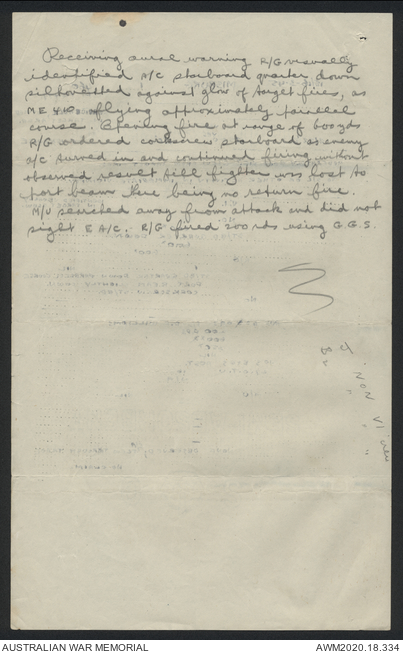 Receiving aural warning R/G visually
identified A/C starboard quarter down
silhouetted against glow of target fires, as
ME 410 flying approximately parallel
course. Opening fire at range of 600 yds
R/G ordered corkscrew starboard as enemy
a/c turned in and continued firing without
observed result till fighter was lost to
port beam there being no return fire.
M/U searched away from attack and did not
sight E A/C. R/G fired 200 rds using G.G.S.
NON
AUSTRALIAN WAR MEMORIAL
AWM2020.18.334